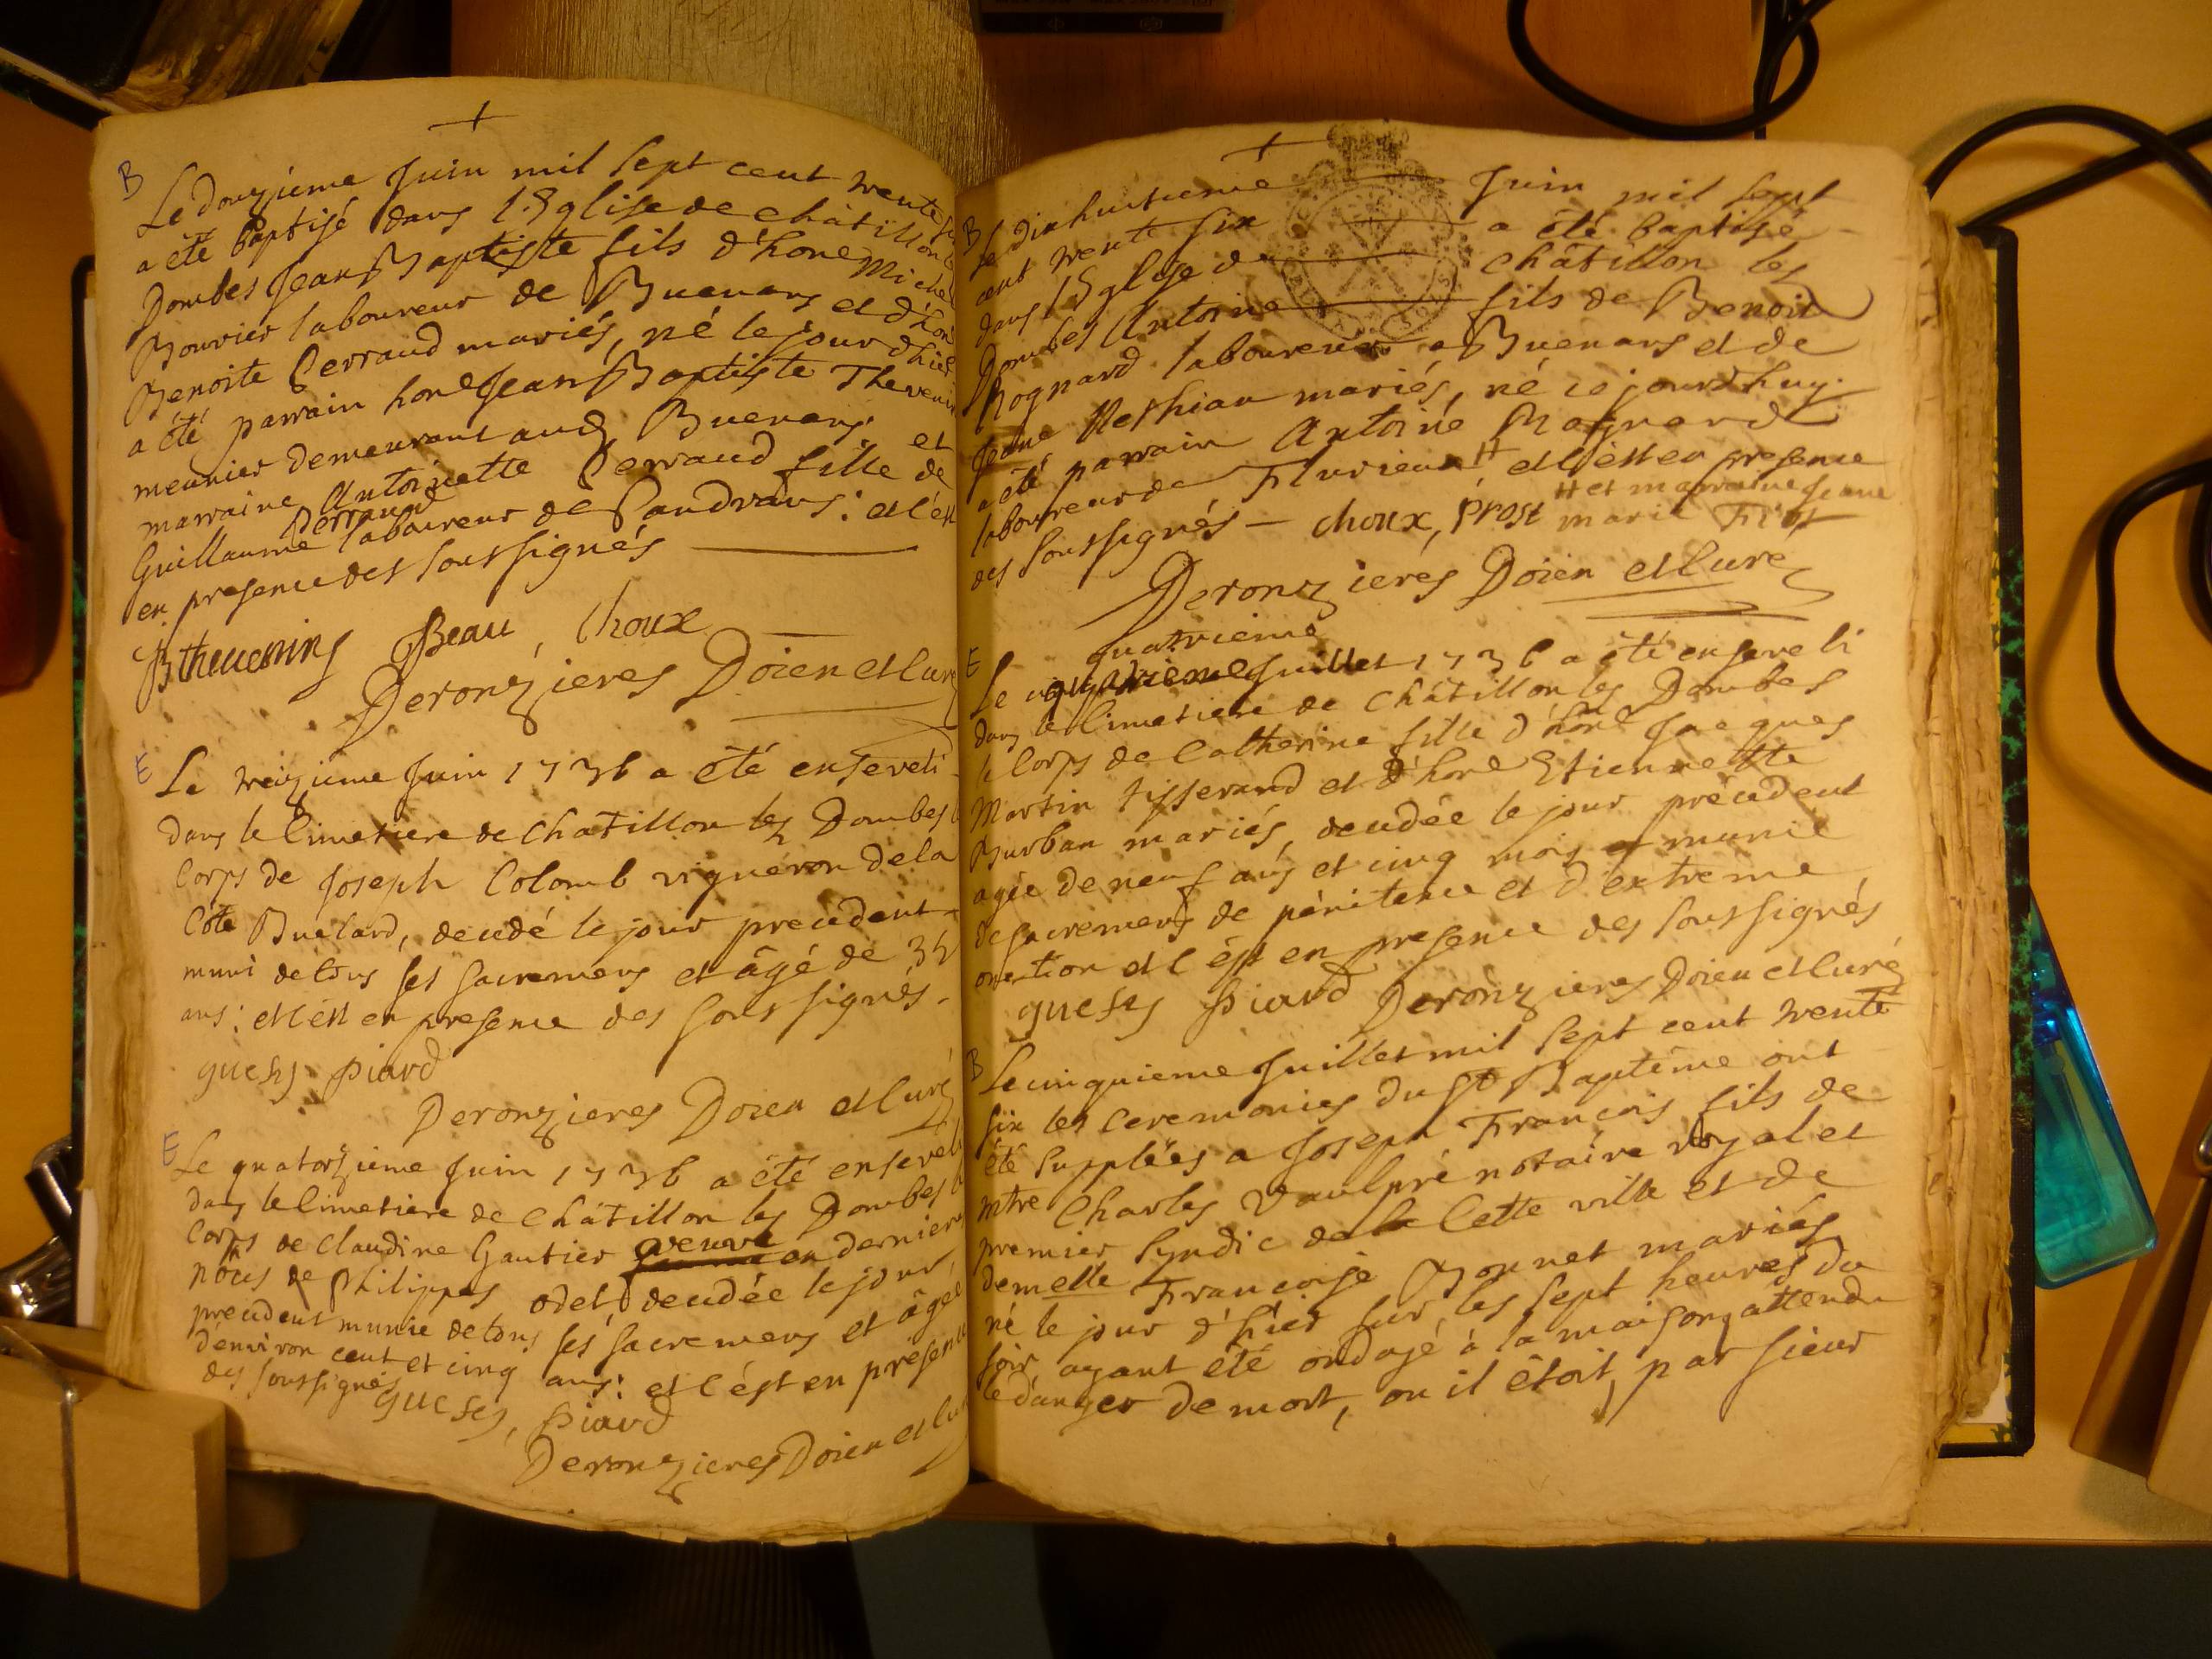 +
B
Le douzieme Juin mil sept cent trente six
a été baptisé dans l'Eglise de Châtillon les
Dombes Jean Baptiste fils d'hone Michel
Bouvier laboureur de Buenans et d'hone
Benoite Perraud mariés, né le jour d'hier
a été parrain hone Jean Baptiste Thevenin
meunier demeurant aud. Buenans et
marraine Antoinette Perraud fille de
Guillaume Perraud laboureur de Sandrans: et c'est
en presence des soussignés
JB thevenins Beau, Choux
Deronzieres Doien et Curé
E
Le treizieme Juin 1736 a été enseveli
dans le Cimetiere de Chatillon les Dombes le
Corps de Joseph Colomb vigneron de la
Côte Buclard, decedé le jour precedent
muni de tous ses sacremens et âgé de 35
ans: et c'est en presence des soussignés.
guesy piard
Deronzieres Doien et Curé
E
Le quatorzieme Juin 1736 a été enseveli
dans le Cimetiere de Châtillon les Dombes le
Corps de Claudine Gautier veuve en dernieres
nôces de Philippes odet, decedée le jour
precedent munie de tous ses sacremens et âgée
d'environ cent et cinq ans: et c'est en présence
des soussignés
guesy, piard
Deronzieres Doien et Curé
+
B
Le dixhuitieme Juin mil sept
cent trente six a été baptisé
dans l'Eglise de Châtillon les
Dombes Antoine fils de Benoit
Rognard laboureur a Buenans et de
Jeane Nesthian mariés, né ce jourdhuy.
a été parrain Antoine Rognard
laboureur de Flurieux # et c'est en presence
des soussignés — choux, Prost
# et marraine Jeane
marie
Deronzieres Doien et Curé
E
quatrieme
Le quatrieme Juillet 1736 a été enseveli
dans le Cimetiere de Châtillon les Dombes
le Corps de Catherine fille d'hone Jacques
Martin tisserand et d'hone Etiennette
Burban mariés, decedée le jour précedent
agée de neuf ans et cinq mois et munie
des sacremens de pénitence et d'extreme
onction et c'est en presence des soussignés
guesy piard Deronzieres Doien et Curé
B
Le cinquieme Juillet mil sept cent trente
six les ceremonies du St Baptême ont
été supplëes a Joseph François fils de
mtre Charles Vaulpré notaire royal et
premier syndic de la Cette ville et de
demelle Francoise Bonnet mariés
né le jour d'hier sur les sept heures du
soir ayant été ondoyé à la maison, attendu
le danger de mort, ou il êtoit, par sieur